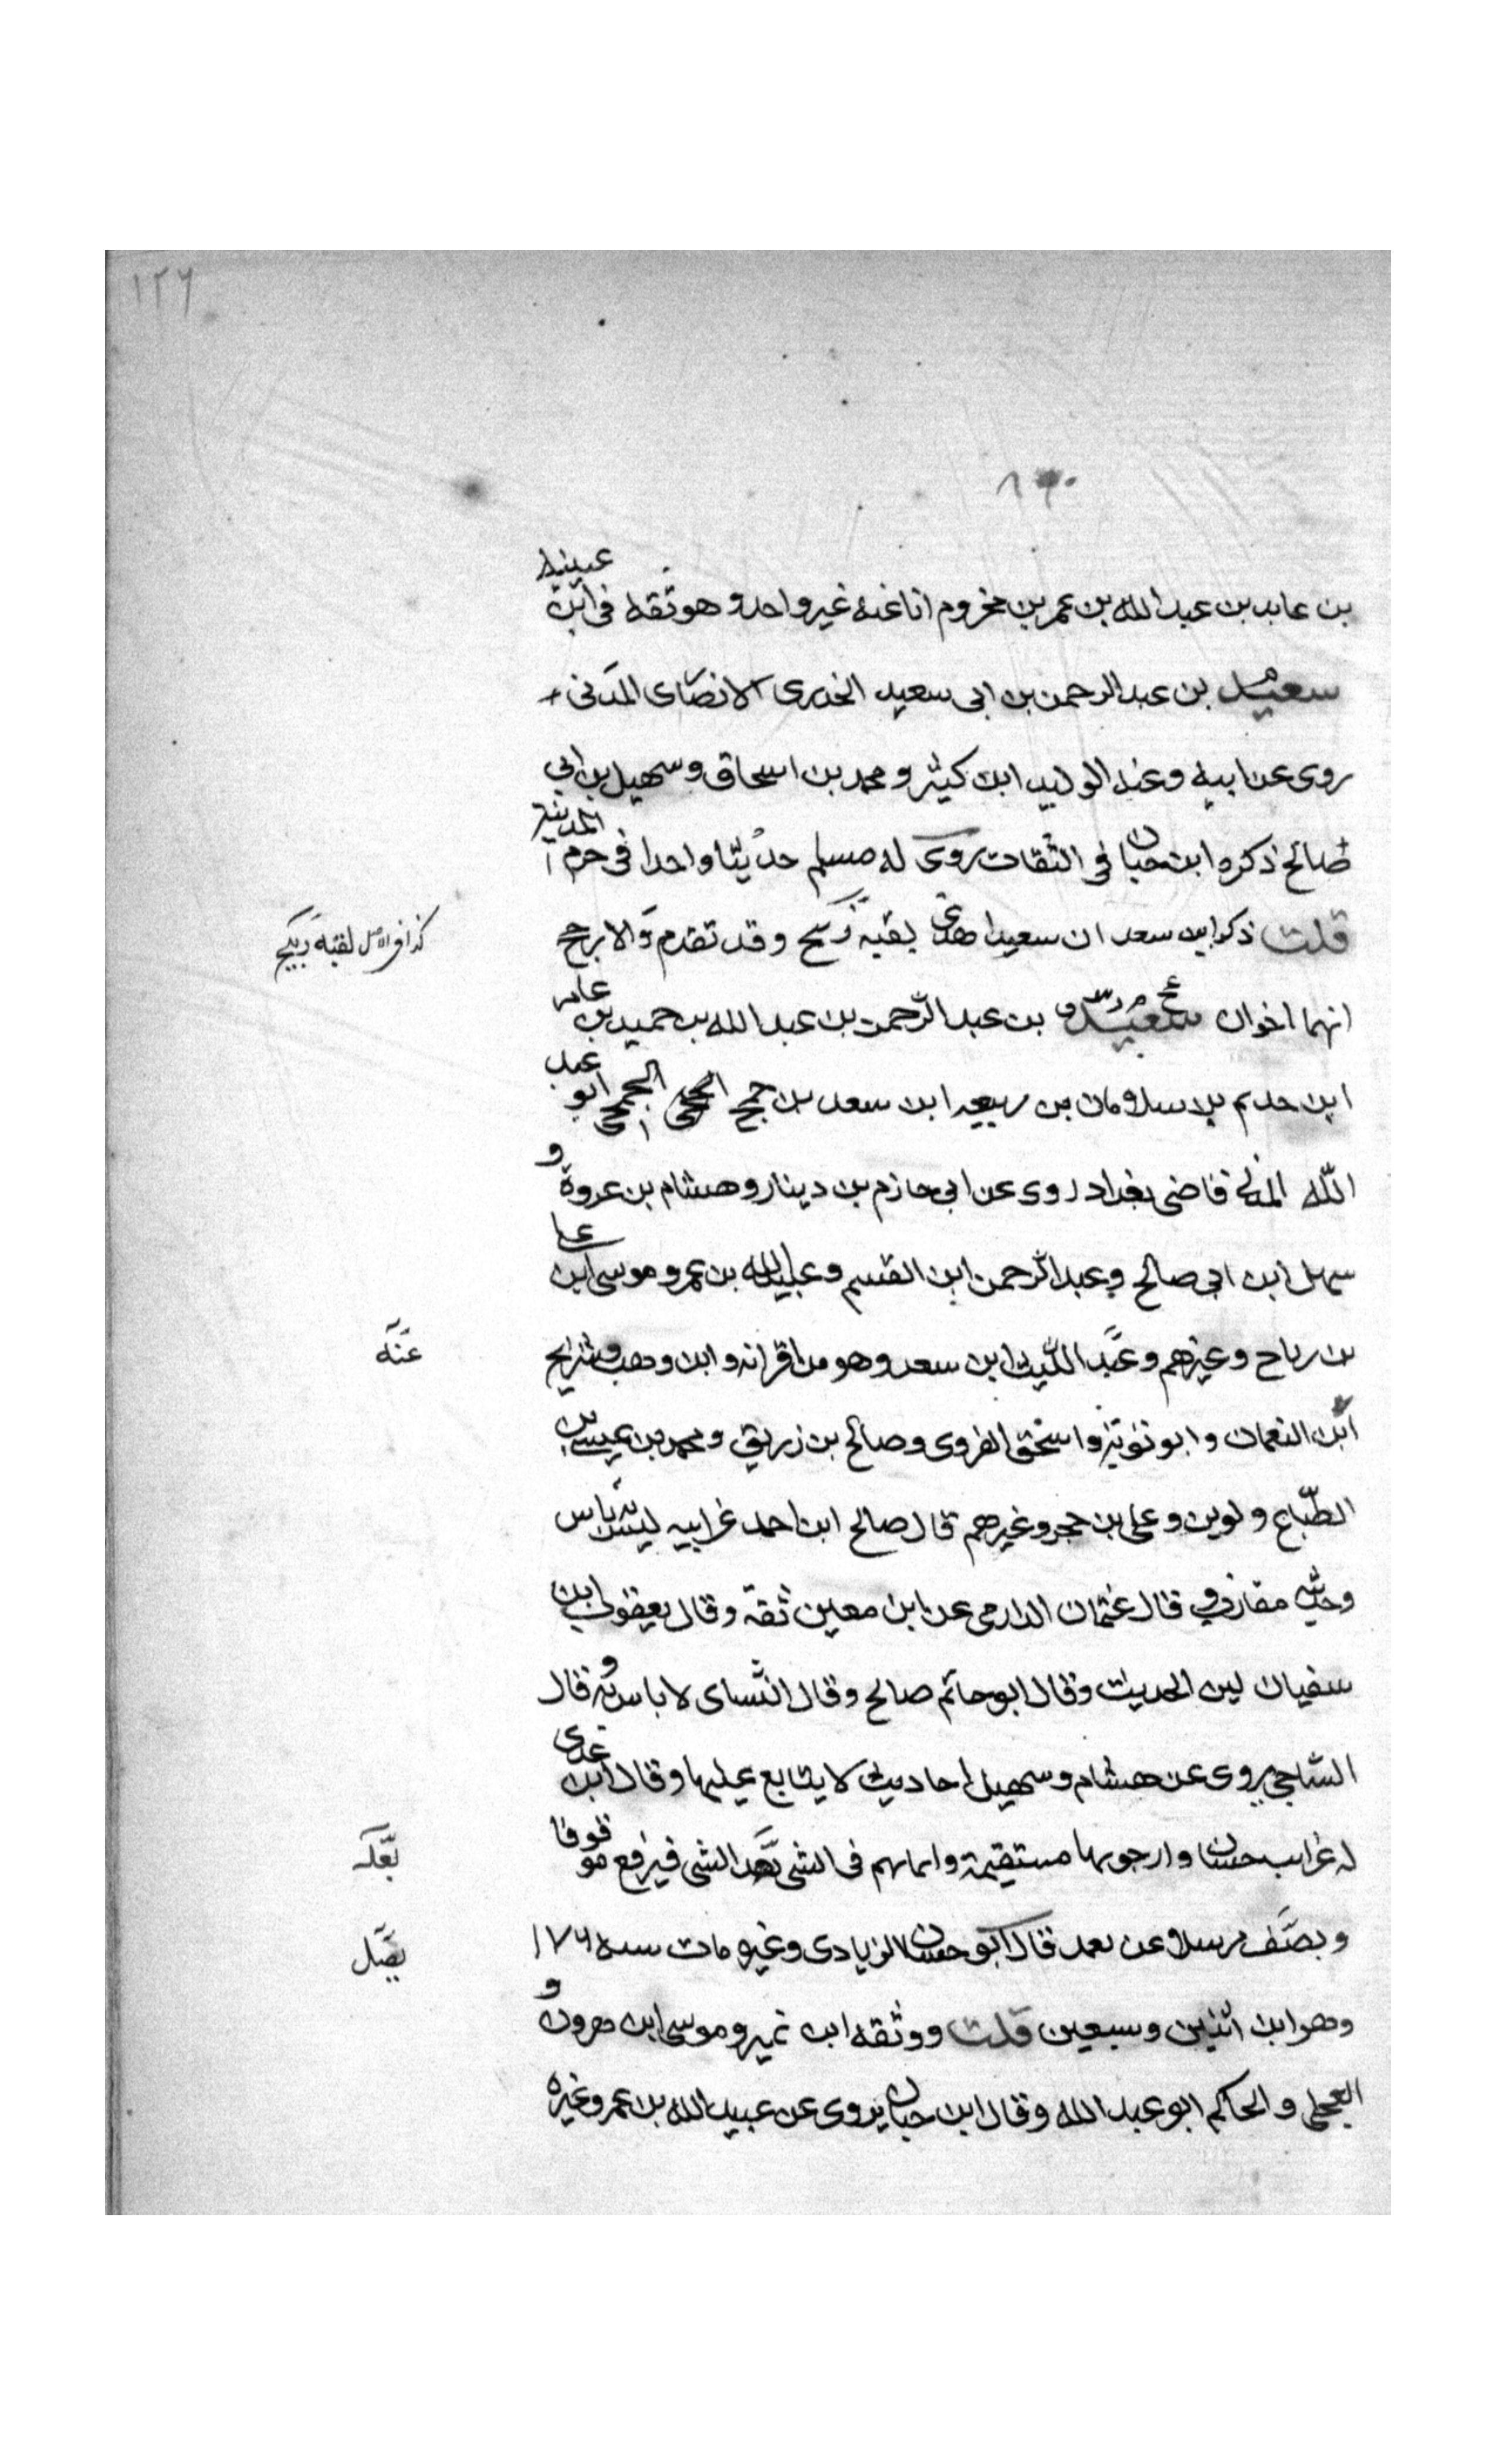 ١٢٦
بن عابد بن عبد الله بن عمر بن مخزوم انا عنه غير واحد وهو ثقه فى ابن عيينه
سعيد بن عبد الرحمن بن ابى سعيد الخدرى الانصاى المدنى
روى عن ابيه وعنه الوليد ابن كيثر ومحمد بن اسحاق وسهيل بن ابي
صالح ذكره ابن حبان فى الثقات روى له مسلم حديثا واحدا فى حرم المدينة
قلت ذكر ابن سعد ان سعيدا هذا لقبه ربيح وقد تقدم والارجح
كذا فى الاصل لقبه ربيح
انهما اخوان سعيد بن عبد الرحمن بن عبد الله بن حميد بن عامر
ابن حديم بن سلامان بن ربيعه ابن سعد بن جمح الجمحى ابو عبد
الله المدنى قاضى بغداد روى عن ابى حازم بن دينار وهشام بن عروة و
سهل ابن ابى صالح وعبد الرحمن ابن القسم وعبيد الله بن عمر وموسى ابن على
بن رباح وغيرهم وعبد الليث ابن سعد وهو من اقرانه وابن وهب وشريح
عنه
ابن النعمان وابو توبة واسحق الفروى وصالح بن زريق ومحمد بن عيسى بن
الطباع ولوين وعلى بن حجر وغيرهم قال صالح ابن احمد عن ابيه ليس به باس
وحديثه مقارب وقال عثمان الدارمى عن ابن معين ثقة وقال يعقوب ابن
سفيان لين الحديث وقال ابو حاتم صالح وقال النساى لا باس به وقال
الساجى يروى عن هشام وسهيل احاديث لا يتابع عليها وقال ابن عدى
له غرايب حسان وارجو بها مستقيمة وانما يهم فى الشى بعد الشى فيرفع موقوفا
بعد
ويصف مرسلا عن تعمد قال ابو حسان الزيادى وغيره مات سنه ١٧٦
يصل
وهو ابن اثنين وسبعين قلت ووثقه ابن نمير وموسى ابن هرون و
العجلى والحاكم ابو عبد الله وقال ابن حبان يروى عن عبيد الله بن عمر وغيره